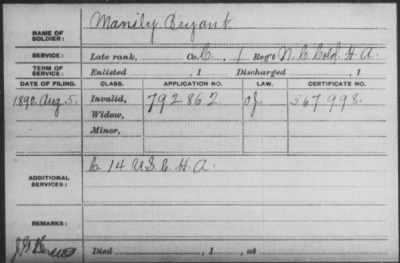 NAME OF SOLDIER: Manily Bryant
SERVICE: Late rank, Co. C, 1 Reg't N.C. Col'd H.A.
TERM OF SERVICE: Enlisted , 1 Discharged , 1
DATE OF FILING. CLASS. APPLICATION NO. LAW. CERTIFICATE NO.
1890. Aug. 5. Invalid, 792862 567998.
Widow,
Minor,
ADDITIONAL SERVICES: C 14 U.S.C.H.A.
REMARKS:
Died , 1 , at